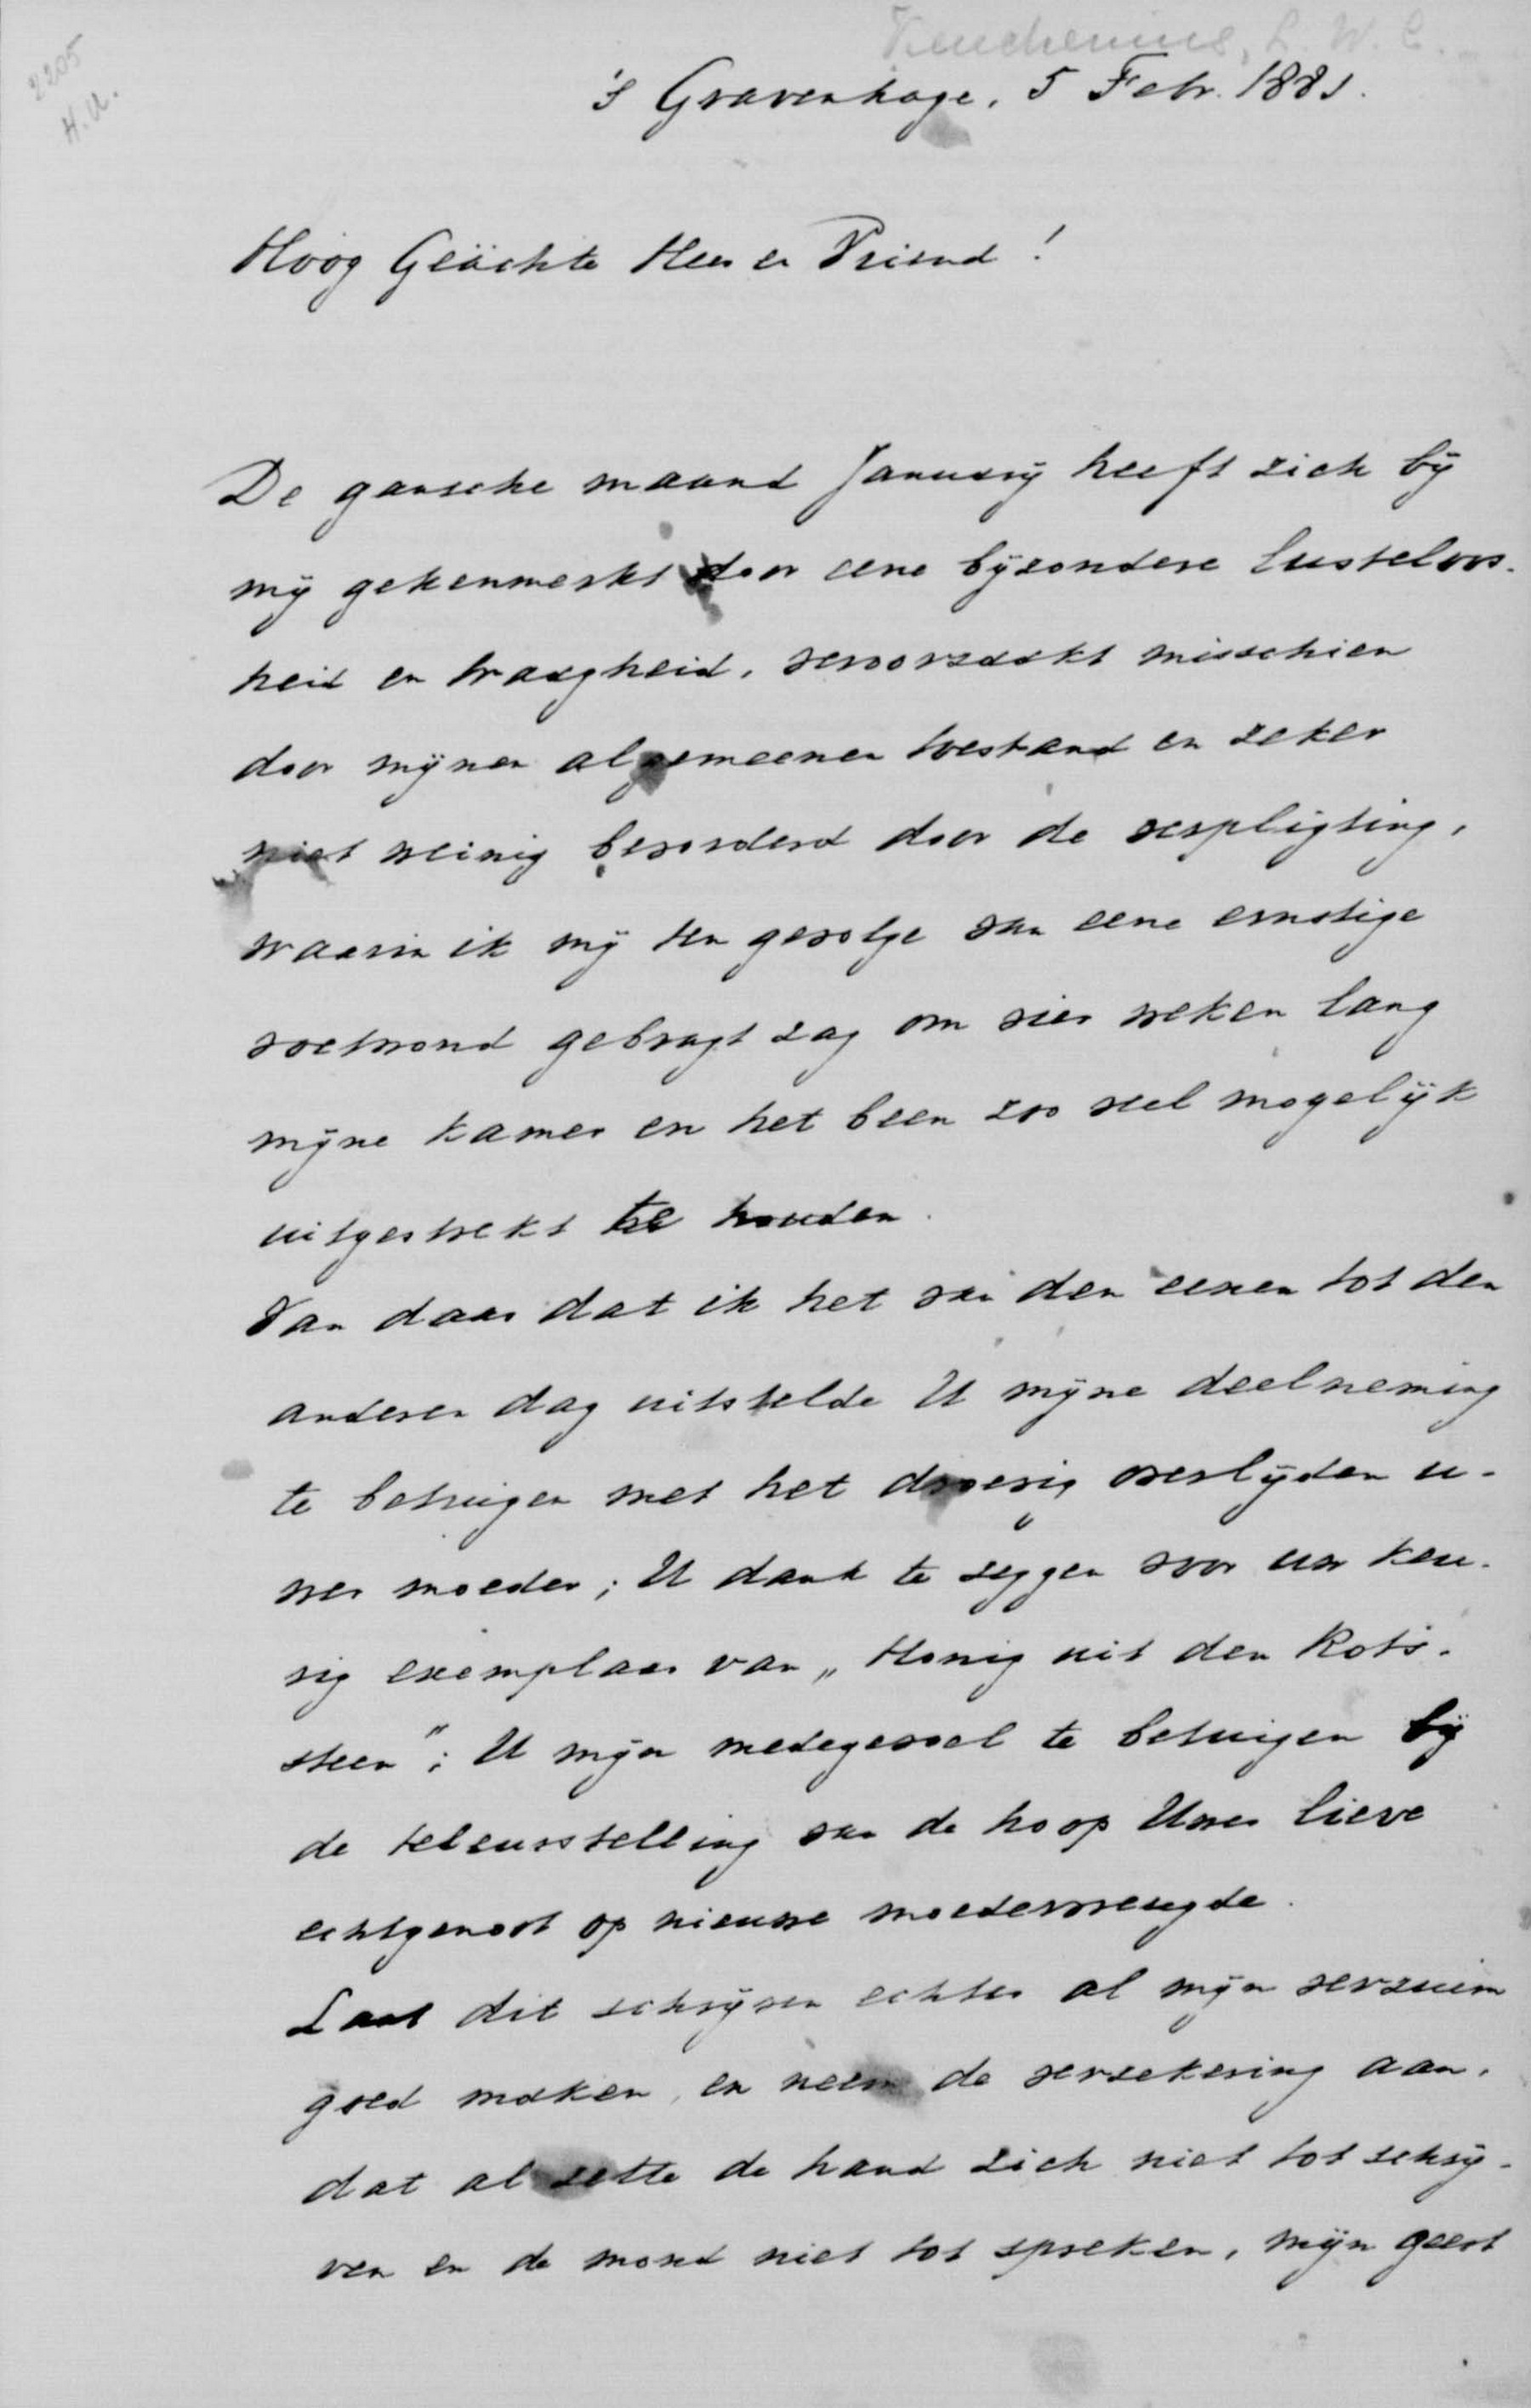 Keuchenius, L. W. C.
2205
H. U.
's Gravenhage, 5 Febr. 1881.
Hoog Geächte Heer en Vriend!
De gansche maand Januarij heeft zich bij
mij gekenmerkt door eene bijzondere lusteloos-
heid en traagheid, veroorzaakt misschien
door mijnen algemeenen toestand en zeker
niet weinig bevorderd door de verpligting,
waarin ik mij ten gevolge van eene ernstige
voetwond gebragt zag om vier weken lang
mijne kamer en het been zoo veel mogelijk
uitgestrekt te houden.
Van daar dat ik het van den eenen tot den
anderen dag uitstelde U mijne deelneming
te betuigen met het droevig overlijden u-
wer moeder; U dank te zeggen voor uw keu-
rig exemplaar van „Honig uit den Rots-
steen"; U mijn medegevoel te betuigen bij
de teleurstelling van de hoop Uwer lieve
echtgenoot op nieuwe moedervreugde.
Laat dit schrijven echter al mijn verzuim
goed maken, en neem de verzekering aan,
dat al zette de hand zich niet tot schrij-
ven en de mond niet tot spreken, mijn geest